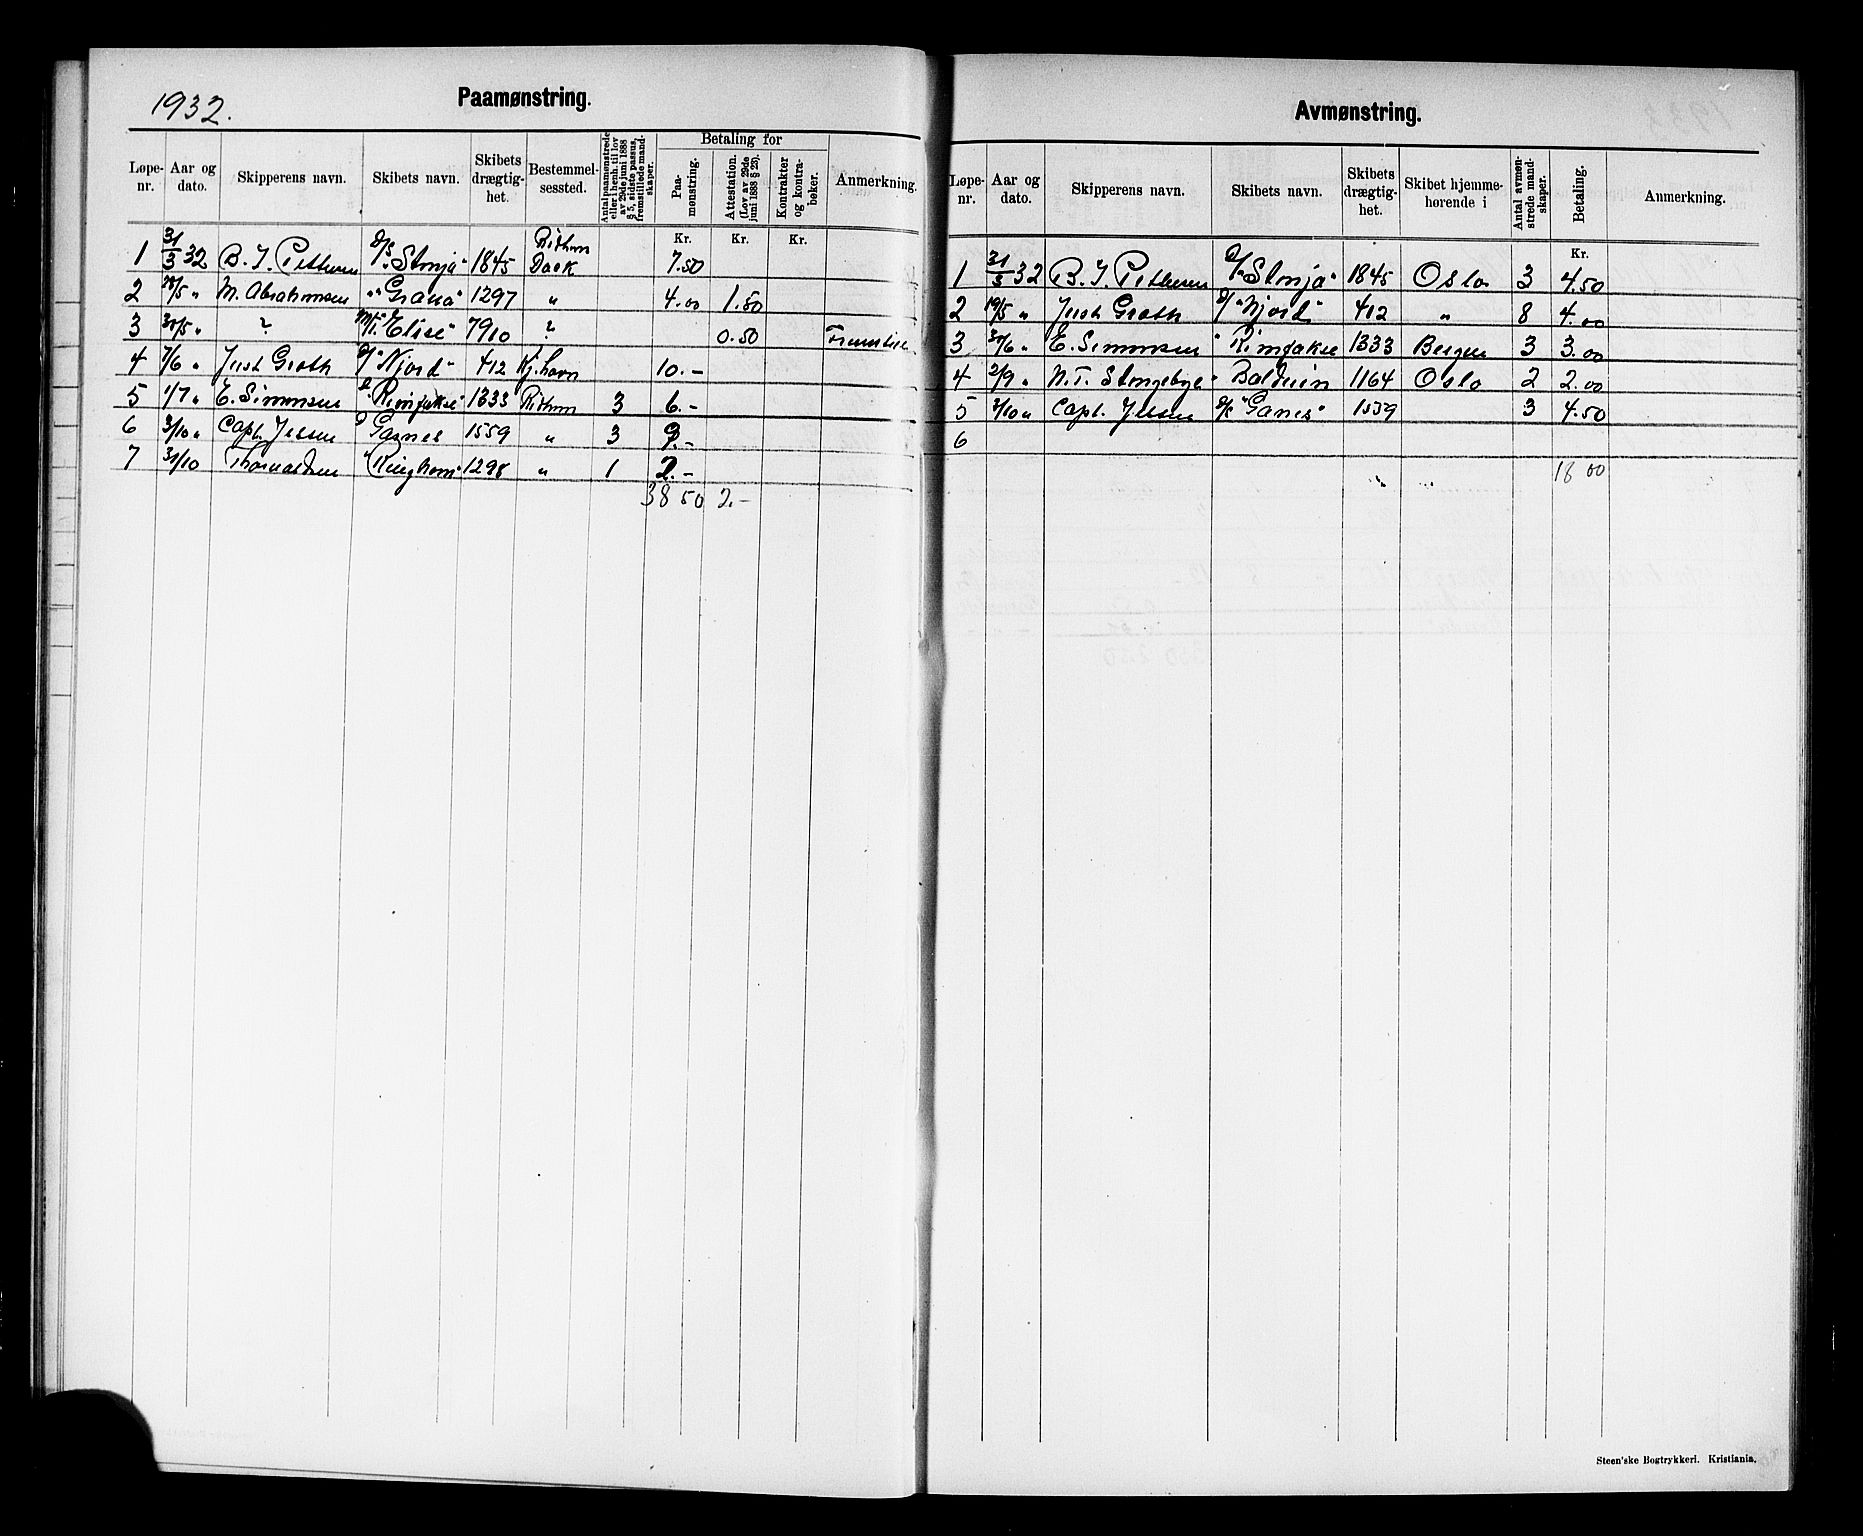 1932.
Paamønstring.
Løpenr. Aar og dato. Skipperens navn. Skibets navn. Skibets drægtighet. Bestemmelsessted. Antal paamønstrede eller i henh. til lov av 29de juni 1888 § 5, sidste passus, fremstillede mandskaper. Betaling for Paamønstring. Attestation. (Lov av 29de juni 1888 § 23). Kontrakter og kontrabøker. Anmerkning.
Kr. Kr. Kr.
1 31/3 32 B. J. Pettersen D/S "Stonja" 1845 Dock 7.50
2 /5 " M. Abrahamsen " "Grana" 1297 " 4.00 1.50
3 /5 " ? "Elise" 7910 ? 0.50
4 7/6 " Just Groth "Njord" 412 Kj.havn 10.-
5 1/7 " E. Simonsen "Rimfakse" 1333 3 6.-
6 3/10 " Capt. Jessen 1559 " 3 9.-
7 31/10 Thorvaldsen "Ringhorn" 1298 " 1 2.-
38 50 2.-
Avmønstring.
Løpenr. Aar og dato. Skipperens navn. Skibets navn. Skibets drægtighet. Skibet hjemmehørende i Antal avmønstrede mandskaper. Betaling. Anmerkning.
Kr.
1 31/3 32 B. J. Pettersen "Stonja" 1845 Oslo 3 4.50
2 19/5 " Just Groth "Njord" 412 " 8 4.00
3 /6 " E. Simonsen " Rimfakse 1333 Bergen 3 3.00
4 2/9 " " Balduin 1164 Oslo 2 2.00
5 /10 " Capt. Jessen "Ganes" 1559 3 4.50
6
18 00
Steen'ske Bogtrykkeri. Kristiania.